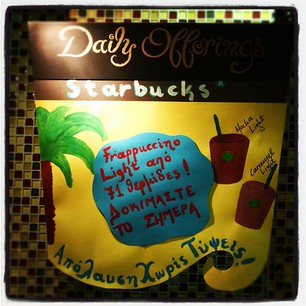 Daily Offerings
Starbucks
Frappuccino
Light από
71 θερμίδες!
ΔΟΚΙΜΑΣΤΕ
ΤΟ ΣΗΜΕΡΑ
Mocha
Light
Caramel
Light
Απόλαυση Χωρίς Τύψεις!